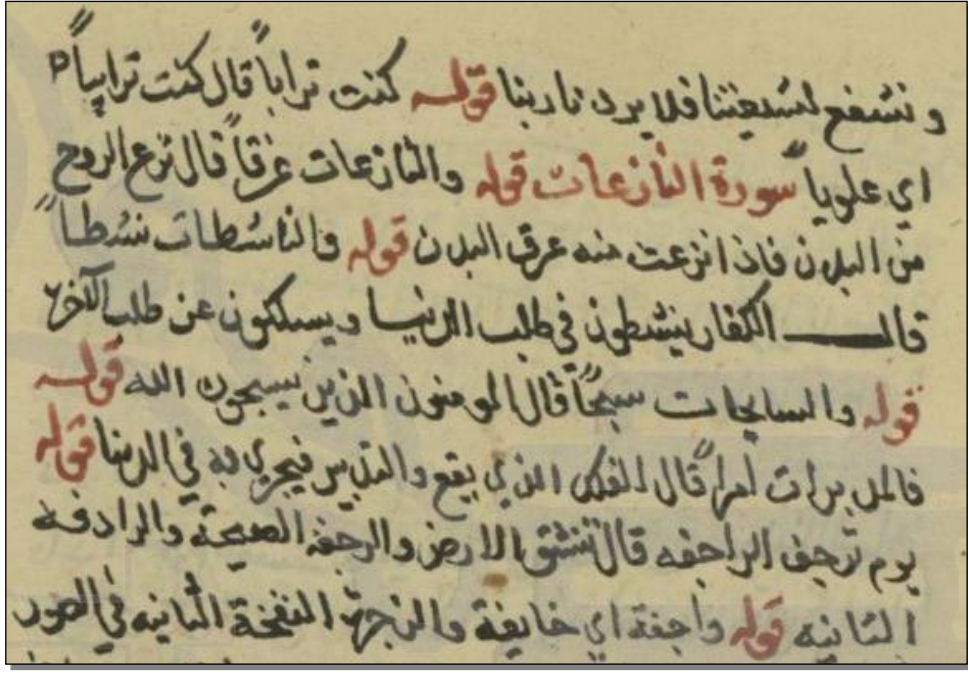 ونشفع لشيعتنا فلا يردنا ربنا قوله كنت تراباً قال كنت ترابياً
اي علوياً سورة النازعات قوله والنازعات غرقاً قال نزع الروح
من البدن فاذا نزعت منه عرق البدن قوله والناشطات نشطاً
قال الكفار ينشطون في طلب الدنيا ويسكون عن طلب الآخرة
قوله والسابحات سبحاً قال المومنون الذين يسبحون الله قوله
فالمدبرات امراً قال الفكر الذي يقع والتدبير فيجري به في الدنيا قوله
يوم ترجف الراجفه قال تنشق الارض والرجفة الصيحة والرادفة
الثانيه قوله واجفة اي خايفة والزجرة النفخة الثانيه في الصور